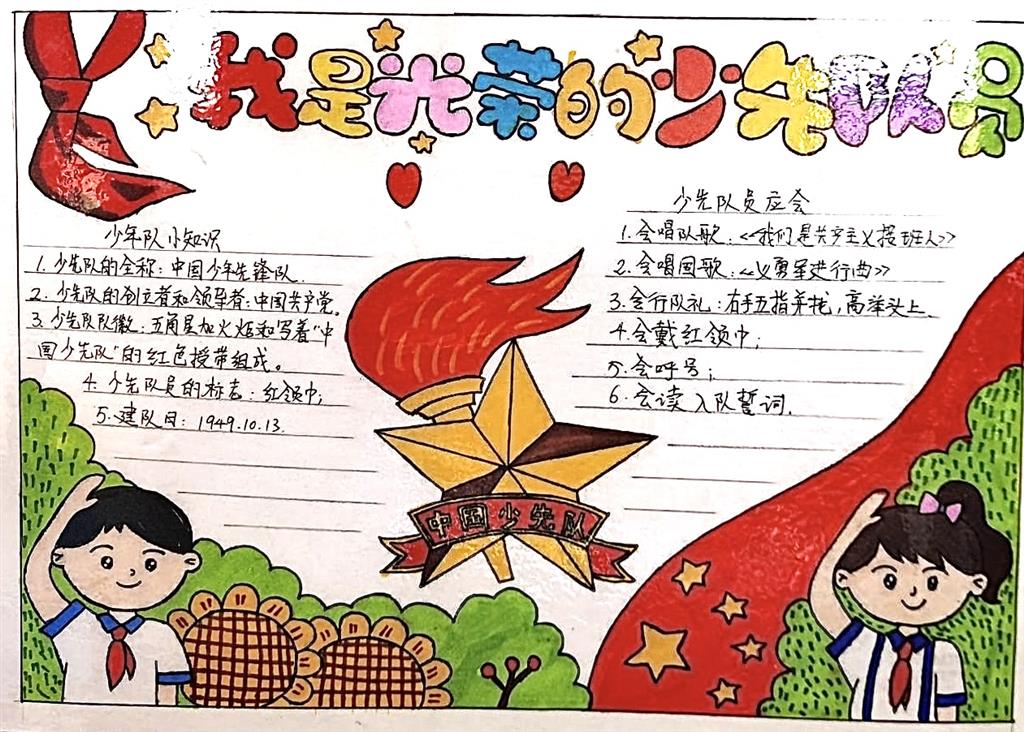 我是光荣的少先队员
少年队小知识
1. 少先队的全称:中国少年先锋队.
2. 少先队的创立者和领导者:中国共产党。
3. 少先队队徽:五角星加火炬和写着"中
国少先队"的红色授带组成。
4. 少先队员的标志:红领巾;
5. 建队日:1949.10.13.
少先队员应会
1. 会唱队歌:《我们是共产主义接班人》
2. 会唱国歌:《义勇军进行曲》
3. 会行队礼:右手五指并拢,高举头上.
4. 会戴红领巾;
5. 会呼号;
6. 会读入队誓词.
中国少先队